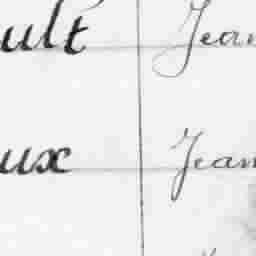 ult Jean
ux Jean